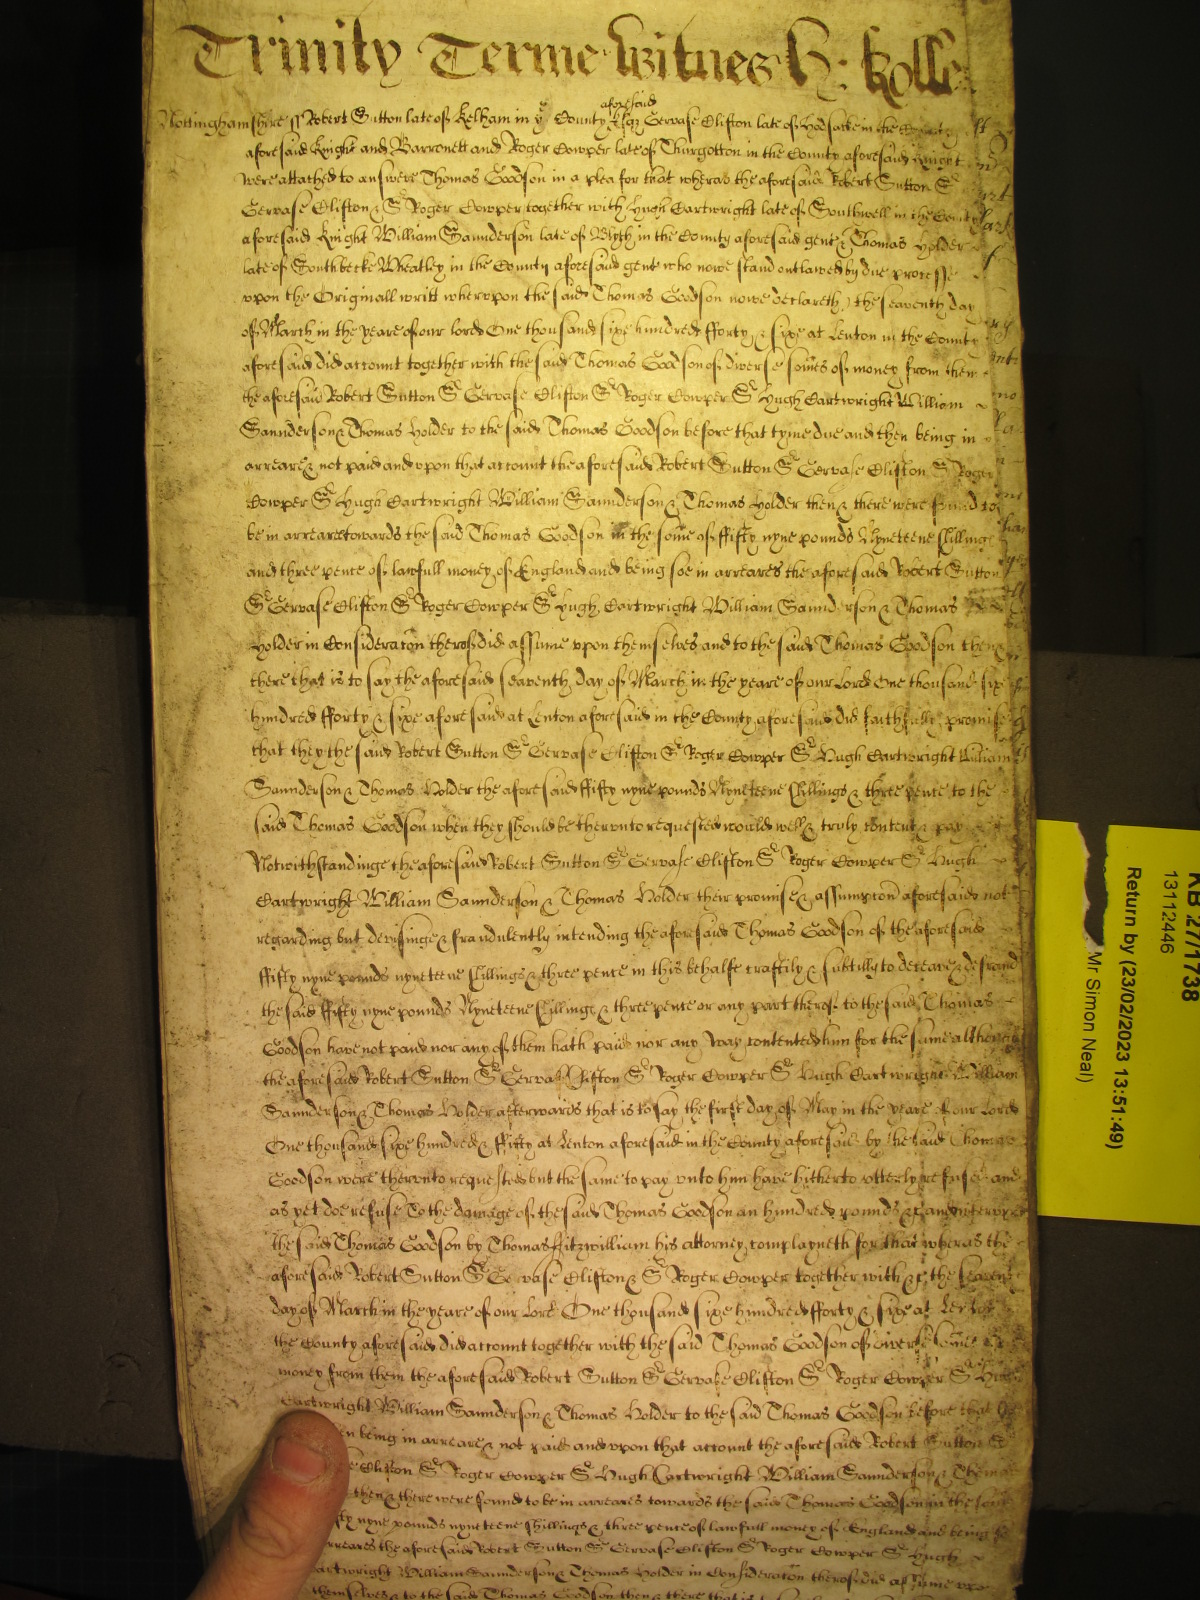 Trinity Terme witnes H: Rolle
Nottinghamshire ss Robert Sutton late of Kelham in ye County aforesaid Esqr Gervase Clifton late of Hodsacke in the County
aforesaid Knight and Barronett and Roger Cowper late of Thurgotton in the County aforesaid Knight
were attached to answere Thomas Goodson in a plea for that wheras the aforesaid Robert Sutton Sr
Gervase Clifton & Sr Roger Cowper together with Hugh Cartwright late of Southwell in the County
aforesaid Knight William Saunderson late of Blyth in the County aforesaid gent & Thomas Holder
late of Southbecke Wheatley in the County aforesaid gent who nowe stand outlawed by due processe
vpon the Originall writt whervpon the said Thomas Goodson nowe declareth, the seaventh day
of March in the yeare of our lord One thousand sixe hundred fforty & sixe at Lenton in the County
aforesaid did account together with the said Thomas Goodson of diverse somes of money from them
the aforesaid Robert Sutton Sr Gervase Clifton Sr Roger Cowper Sr Hugh Cartwright William
Saunderson & Thomas Holder to the said Thomas Goodson before that tyme due and then being in
arreare & not paid and vpon that account the aforesaid Robert Sutton Sr Gervase Clifton Sr Roger
Cowper Sr Hugh Cartwright William Saunderson & Thomas Holder then & there were found to
be in arreares towards the said Thomas Goodson in the some of ffifty nyne pounds Nyneteene shillings
and three pence of lawfull money of England and being soe in arreares the aforesaid Robert Sutton
Sr Gervase Clifton Sr Roger Cowper Sr Hugh Cartwright William Saunderson & Thomas
Holder in Consideraton therof did assume vpon themselves and to the said Thomas Goodson then &
there that is to say the aforesaid seaventh day of March in the yeare of our Lord One thousand six
hundred fforty & sixe aforesaid at Lenton aforesaid in the County aforesaid did faithfully promise
that they the said Robert Sutton Sr Gervase Clifton Sr Roger Cowper Sr Hugh Cartwright William
Saunderson & Thomas Holder the aforesaid ffifty nyne pounds Nyneteene shillings & three pence to the
said Thomas Goodson when they should be thervnto requested would well & truly content & pay
Notwithstandinge the aforesaid Robert Sutton Sr Gervase Clifton Sr Roger Cowper Sr Hugh
Cartwright William Saunderson & Thomas Holder their promise & assumpcon aforesaid not
regarding but devisinge & fraudulently intending the aforesaid Thomas Goodson of the aforesaid
ffifty nyne pounds nyneteene shillings & three pence in this behalfe craftily & subtilly to deceave & defraud
the said ffifty nyne pounds Nyneteene shillings & three pence or any part therof to the said Thomas
Goodson have not paid nor any of them hath paid nor any way contented him for the same although
the aforesaid Robert Sutton Sr Gervase Clifton Sr Roger Cowper Sr Hugh Cartwright William
Saunderson & Thomas Holder afterwards that is to say the first day of May in the yeare of our Lord
One thousand sixe hundred & ffifty at Lenton aforesaid in the County aforesaid by the said Thomas
Goodson were thervnto requested but the same to pay vnto him have hitherto vtterly refused and
as yet doe refuse To the damage of the said Thomas Goodson an hundred pounds
the said Thomas Goodson by Thomas ffitzwilliam his attorney complayneth for that wheras the
aforesaid Robert Sutton Sr Gervase Clifton & Sr Roger Cowper together with &c the seaventh
day of March in the yeare of our Lord One thousand sixe hundred fforty & sixe at Lenton
the County aforesaid did account together with the said Thomas Goodson of diverse somes of
money from them the aforesaid Robert Sutton Sr Gervase Clifton Sr Roger Cowper Sr Hugh
Cartwright William Saunderson & Thomas Holder to the said Thomas Goodson before that
being in arreare & not paid and vpon that account the aforesaid Robert Sutton Sr
Clifton Sr Roger Cowper Sr Hugh Cartwright William Saunderson & Thomas
then & there were found to be in arreares towards the said Thomas Goodson in the some
nyne pounds nyneteene shillings & three pence of lawfull money of England and being
arreares the aforesaid Robert Sutton Sr Gervase Clifton Sr Roger Cowper Sr Hugh
Cartwright William Saunderson & Thomas Holder in Consideraton therof did assume vpon
themselves & to the said Thomas Goodson then & there that is to
KB 27/1738
13112446
Return by (23/02/2023 13:51:49)
Mr Simon Neal)